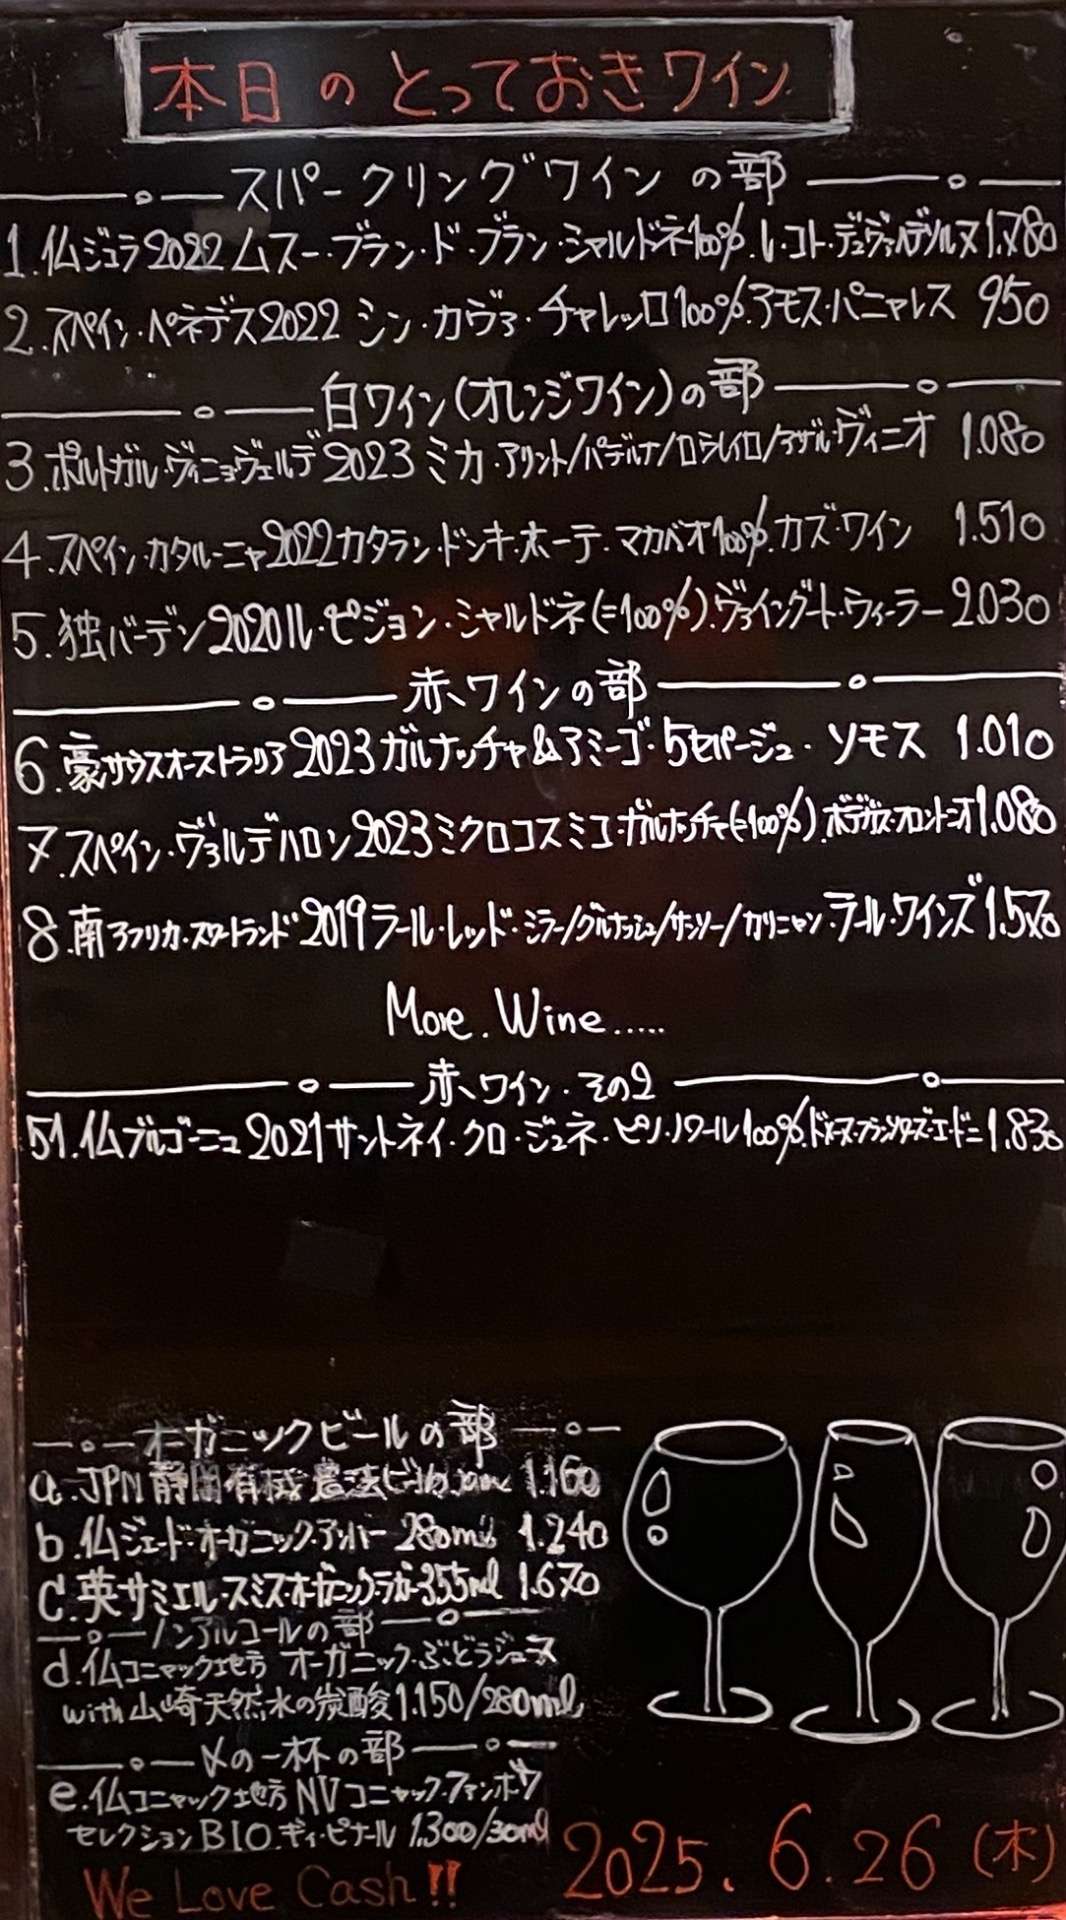 本日のとっておきワイン
スパークリングワインの部
1.仏ジュラ2022ムスー・ブラン・ド・ブラン・シャルドネ100%.レ・コト・デュヴァルデソルヌ1.780
2.スペイン・ペネデス2022 シン・カヴァ・チャレッロ100%.アモス・パニャレス 950
白ワイン(オレンジワイン)の部
3.ポルトガル・ヴィニョヴェルデ2023ミカ・アリント/パデルナ/ロウレイロ/アザル・ヴィニオ 1.080
4.スペイン・カタルーニャ2022カタラン・ドンキ・ホーテ・マカベオ100%.カズ・ワイン 1.510
5.独バーデン2020ル・ピジョン・シャルドネ(=100%).ヴァイングート・ウィーラー2.030
赤ワインの部
6.豪サウスオーストラリア2023ガルナッチャ&アミーゴ・5セパージュ・ソモス 1.010
7.スペイン・ヴァルデハロン2023ミクロコスミコ・ガルナッチャ(=100%).ボデガス・フロントニオ1.080
8.南アフリカ・スワートランド2019ラール・レッド・シラー/グルナッシュ/サンソー/カリニャン・ラール・ワインズ1.570
More.Wine.....
赤ワイン・その2
51.仏ブルゴーニュ2021サントネイ・クロ・ジュネ・ピノ・ノワール100%.ドメーヌ・フランソワーズ・エ・ドニ1.830
オーガニックビールの部
a.JPN静岡有機農法ビール 1.160
b.仏ジェード・オーガニック・アンバー 280ml 1.240
c.英サミエル・スミスオーガニックラガー355ml 1.670
ノンアルコールの部
d.仏コニャック地方 オーガニック・ぶどうジュース
with山崎天然水の炭酸1.150/280ml
〆の一杯の部
e.仏コニャック地方NVコニャック・ファンボワ
セレクションBIO.ギィ・ピナール 1.300/30ml
We Love Cash!!
2025.6.26(木)